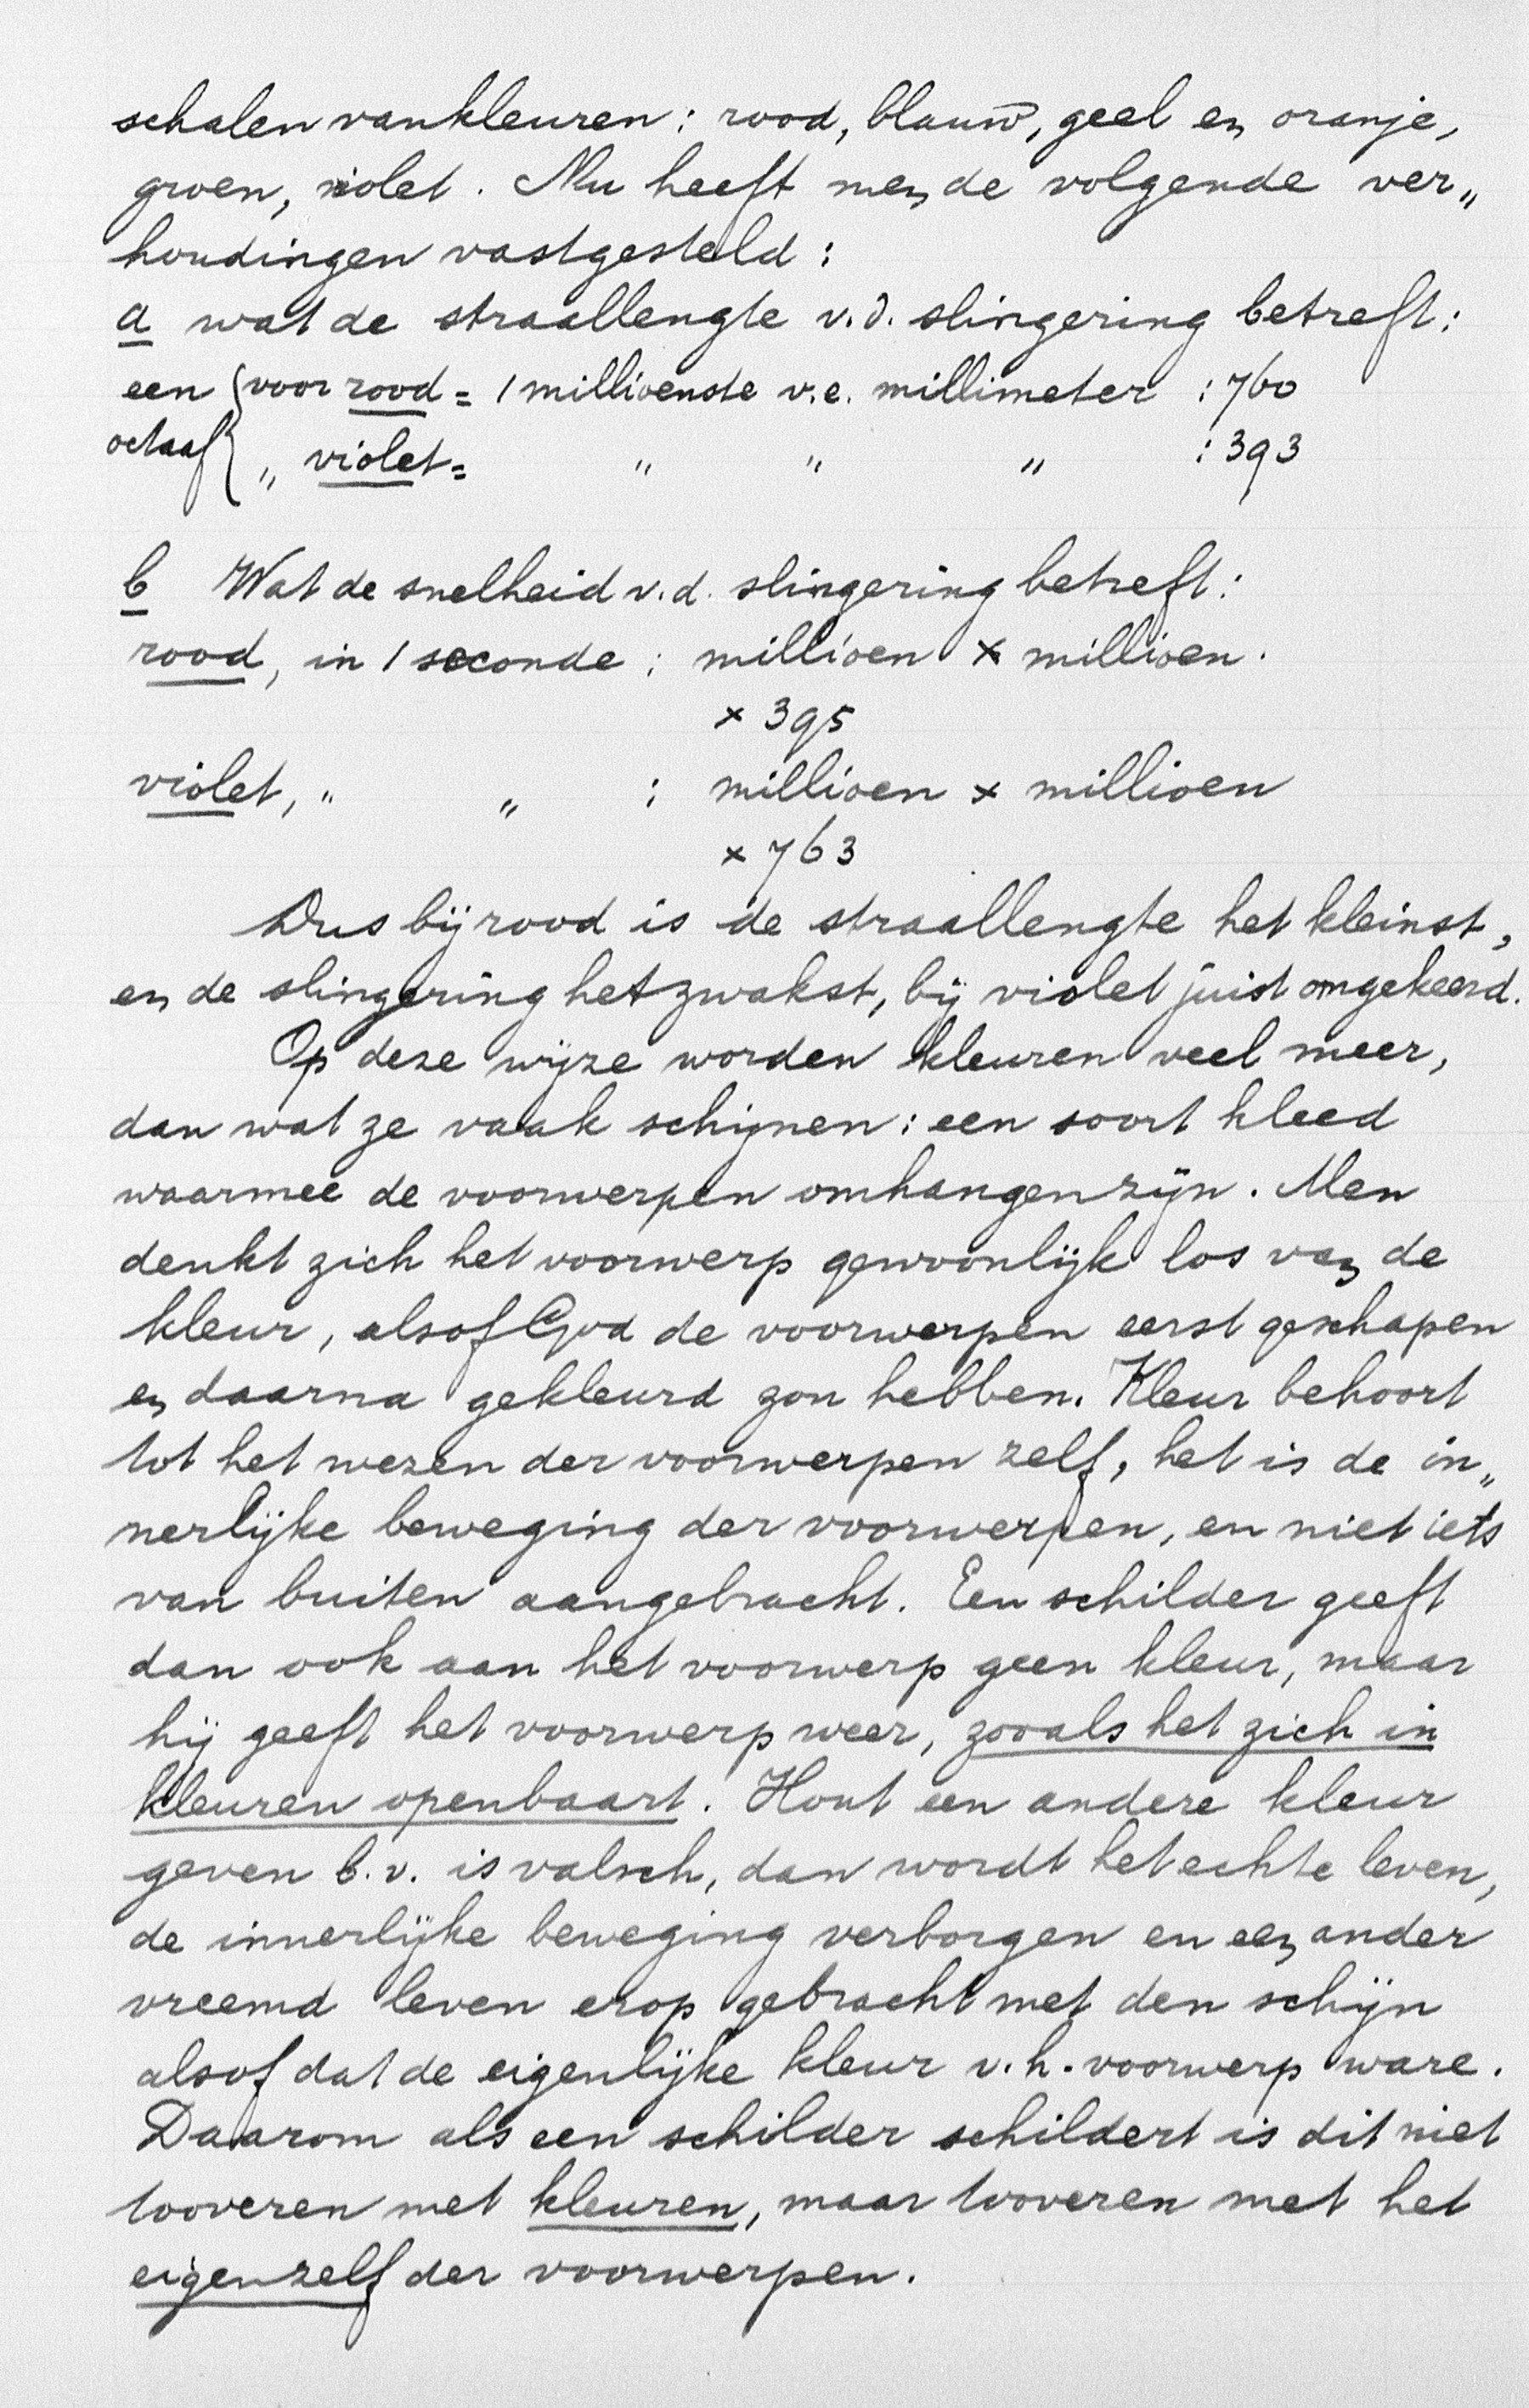 schalen van kleuren: rood, blauw, geel en oranje,
groen, violet. Nu heeft men de volgende ver„
houdingen vastgesteld:
a wat de straallengte v.d. slingering betreft:
een { voor rood = 1 millioenste v.e. millimeter : 760
octaaf { „ violet = „ „ „ : 393
b Wat de snelheid v.d. slingering betreft:
rood, in 1 seconde : millioen x millioen.
x 395
violet, „ „ : millioen x millioen
x 763
Dus bij rood is de straallengte het kleinst,
en de slingering het zwakst, bij violet juist omgekeerd.
Op deze wijze worden kleuren veel meer,
dan wat ze vaak schijnen: een soort kleed
waarmee de voorwerpen omhangen zijn. Men
denkt zich het voorwerp gewoonlijk los van de
kleur, alsof God de voorwerpen eerst geschapen
en daarna gekleurd zou hebben. Kleur behoort
tot het wezen der voorwerpen zelf, het is de in„
nerlijke beweging der voorwerpen, en niet iets
van buiten aangebracht. Een schilder geeft
dan ook aan het voorwerp geen kleur, maar
hij geeft het voorwerp weer, zooals het zich in
kleuren openbaart. Hout een andere kleur
geven b.v. is valsch, dan wordt het echte leven,
de innerlijke beweging verborgen en een ander
vreemd leven erop gebracht met den schijn
alsof dat de eigenlijke kleur v.h. voorwerp ware.
Daarom als een schilder schildert is dit niet
tooveren met kleuren, maar tooveren met het
eigen zelf der voorwerpen.